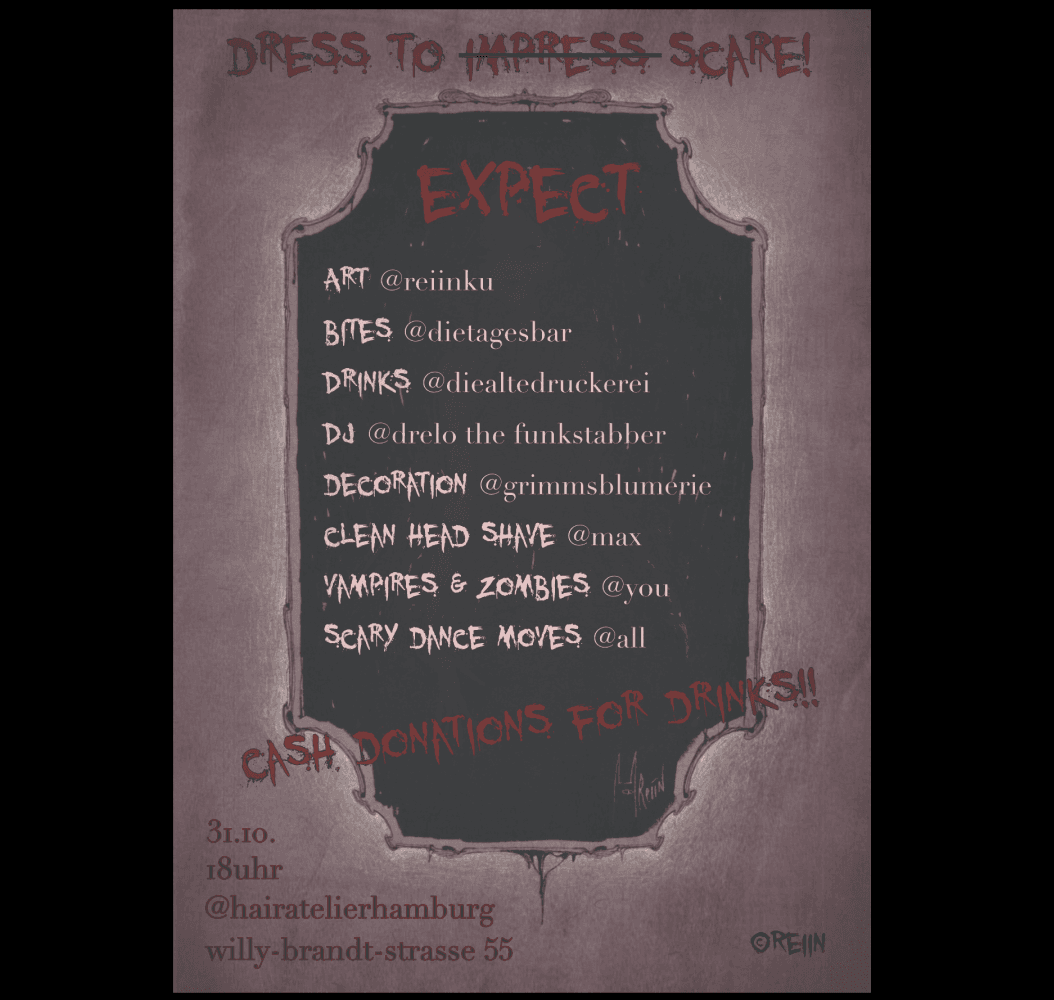 DRESS TO IMPRESS SCARE!
EXPECT
ART @reiinku
BITES @dietagesbar
DRINKS @diealtedruckerei
DJ @drelo the funkstabber
DECORATION @grimmsblumerie
CLEAN HEAD SHAVE @max
VAMPIRES & ZOMBIES @you
SCARY DANCE MOVES @all
CASH DONATIONS FOR DRINKS!!
Reiin
31.10.
18uhr
@hairatelierhamburg
willy-brandt-strasse 55
©REIIN